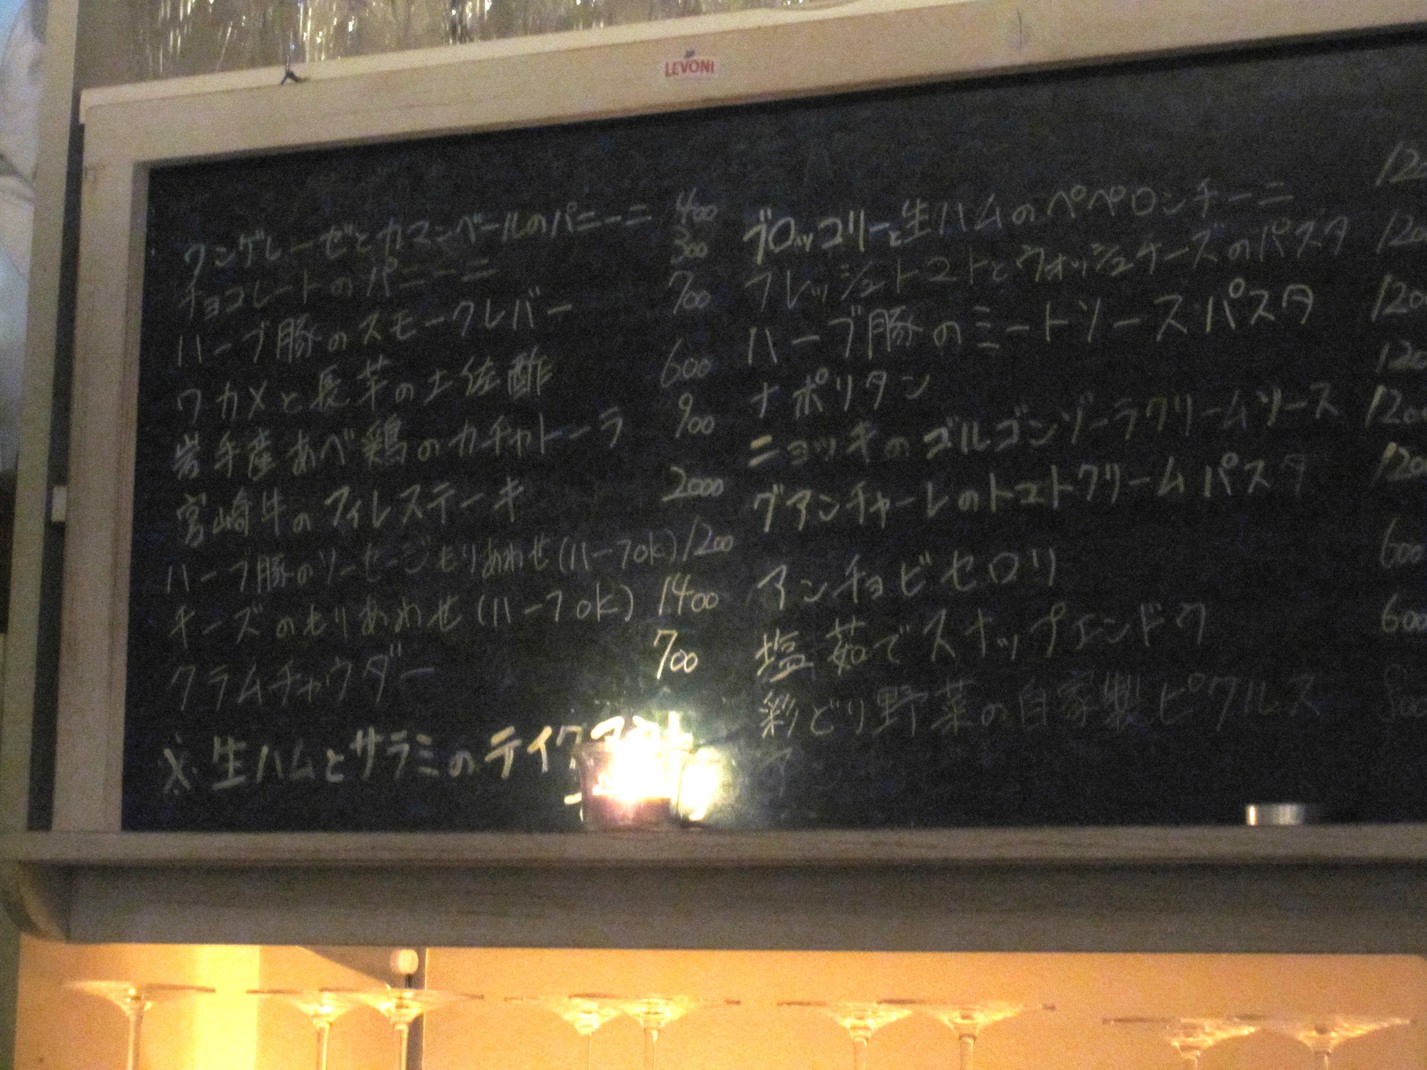 LEVONI
ウンゲレーゼとカマンベールのパニーニ 400
チョコレートのパニーニ 300
ハーブ豚のスモークレバー 700
ワカメと長芋の土佐酢 600
岩手産あべ鶏のカチャトーラ 900
宮崎牛のフィレステーキ 2000
ハーブ豚のソーセージもりあわせ(ハーフok) 1200
チーズのもりあわせ(ハーフok) 1400
クラムチャウダー 700
※生ハムとサラミのテイク
ブロッコリーと生ハムのペペロンチーニ
フレッシュトマトとウォッシュチーズのパスタ
ハーブ豚のミートソースパスタ
ナポリタン
ニョッキのゴルゴンゾーラクリームソース
グアンチャーレのトマトクリームパスタ
アンチョビセロリ
塩茹でスナップエンドウ
彩どり野菜の自家製ピクルス